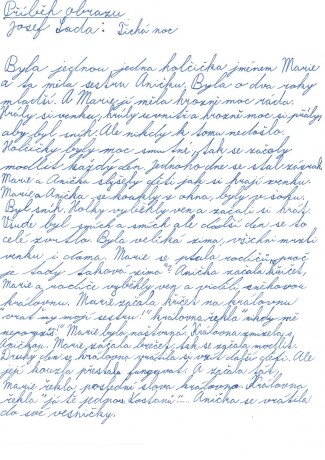 Příběh obrazu
Josef Lada: Tichá noc
Byla jednou jedna holčička jménem Marie
a ta měla sestru Aničku. Byla o dva roky
mladší. A Marie jí měla hrozně moc ráda.
Hrály si venku, hrály uvnitř a hrozně moc si přály,
aby byl sníh. Ale nikdy k tomu nedošlo.
Holčičky byly moc smutné, tak se začaly
modlit každý den. Jednoho dne se stal zázrak.
Marie a Anička slyšely děti jak si hrají venku.
Marie a Anička se koukly z okna, byly v šoku.
Byl sníh. Holky vyběhly ven a začali si hrát.
Všude byl smích a smích ale další den se to
celé zvrtlo. Byla veliká zima, všichni mrzli
venku i doma. Marie se ptala rodičů "proč
je tady taková zima". Anička začala křičet,
Marie a rodiče vyběhly ven a viděli sněhovou
královnu. Marie začala křičet na královnu
"vrať mi moji sestru!" královna řekla "nikdy mě
" Marie byla naštvaná, královna zmizela s
Aničkou. Marie začala brečet, tak se začala modlit.
Druhý den se královna vrátila si vzít další děti. Ale
její kouzla přestala fungovat. A začala tát.
Marie řekla poslední slova královno. Královna
řekla "já tě jednou dostanu"... Anička se vrátila
do své vesničky.